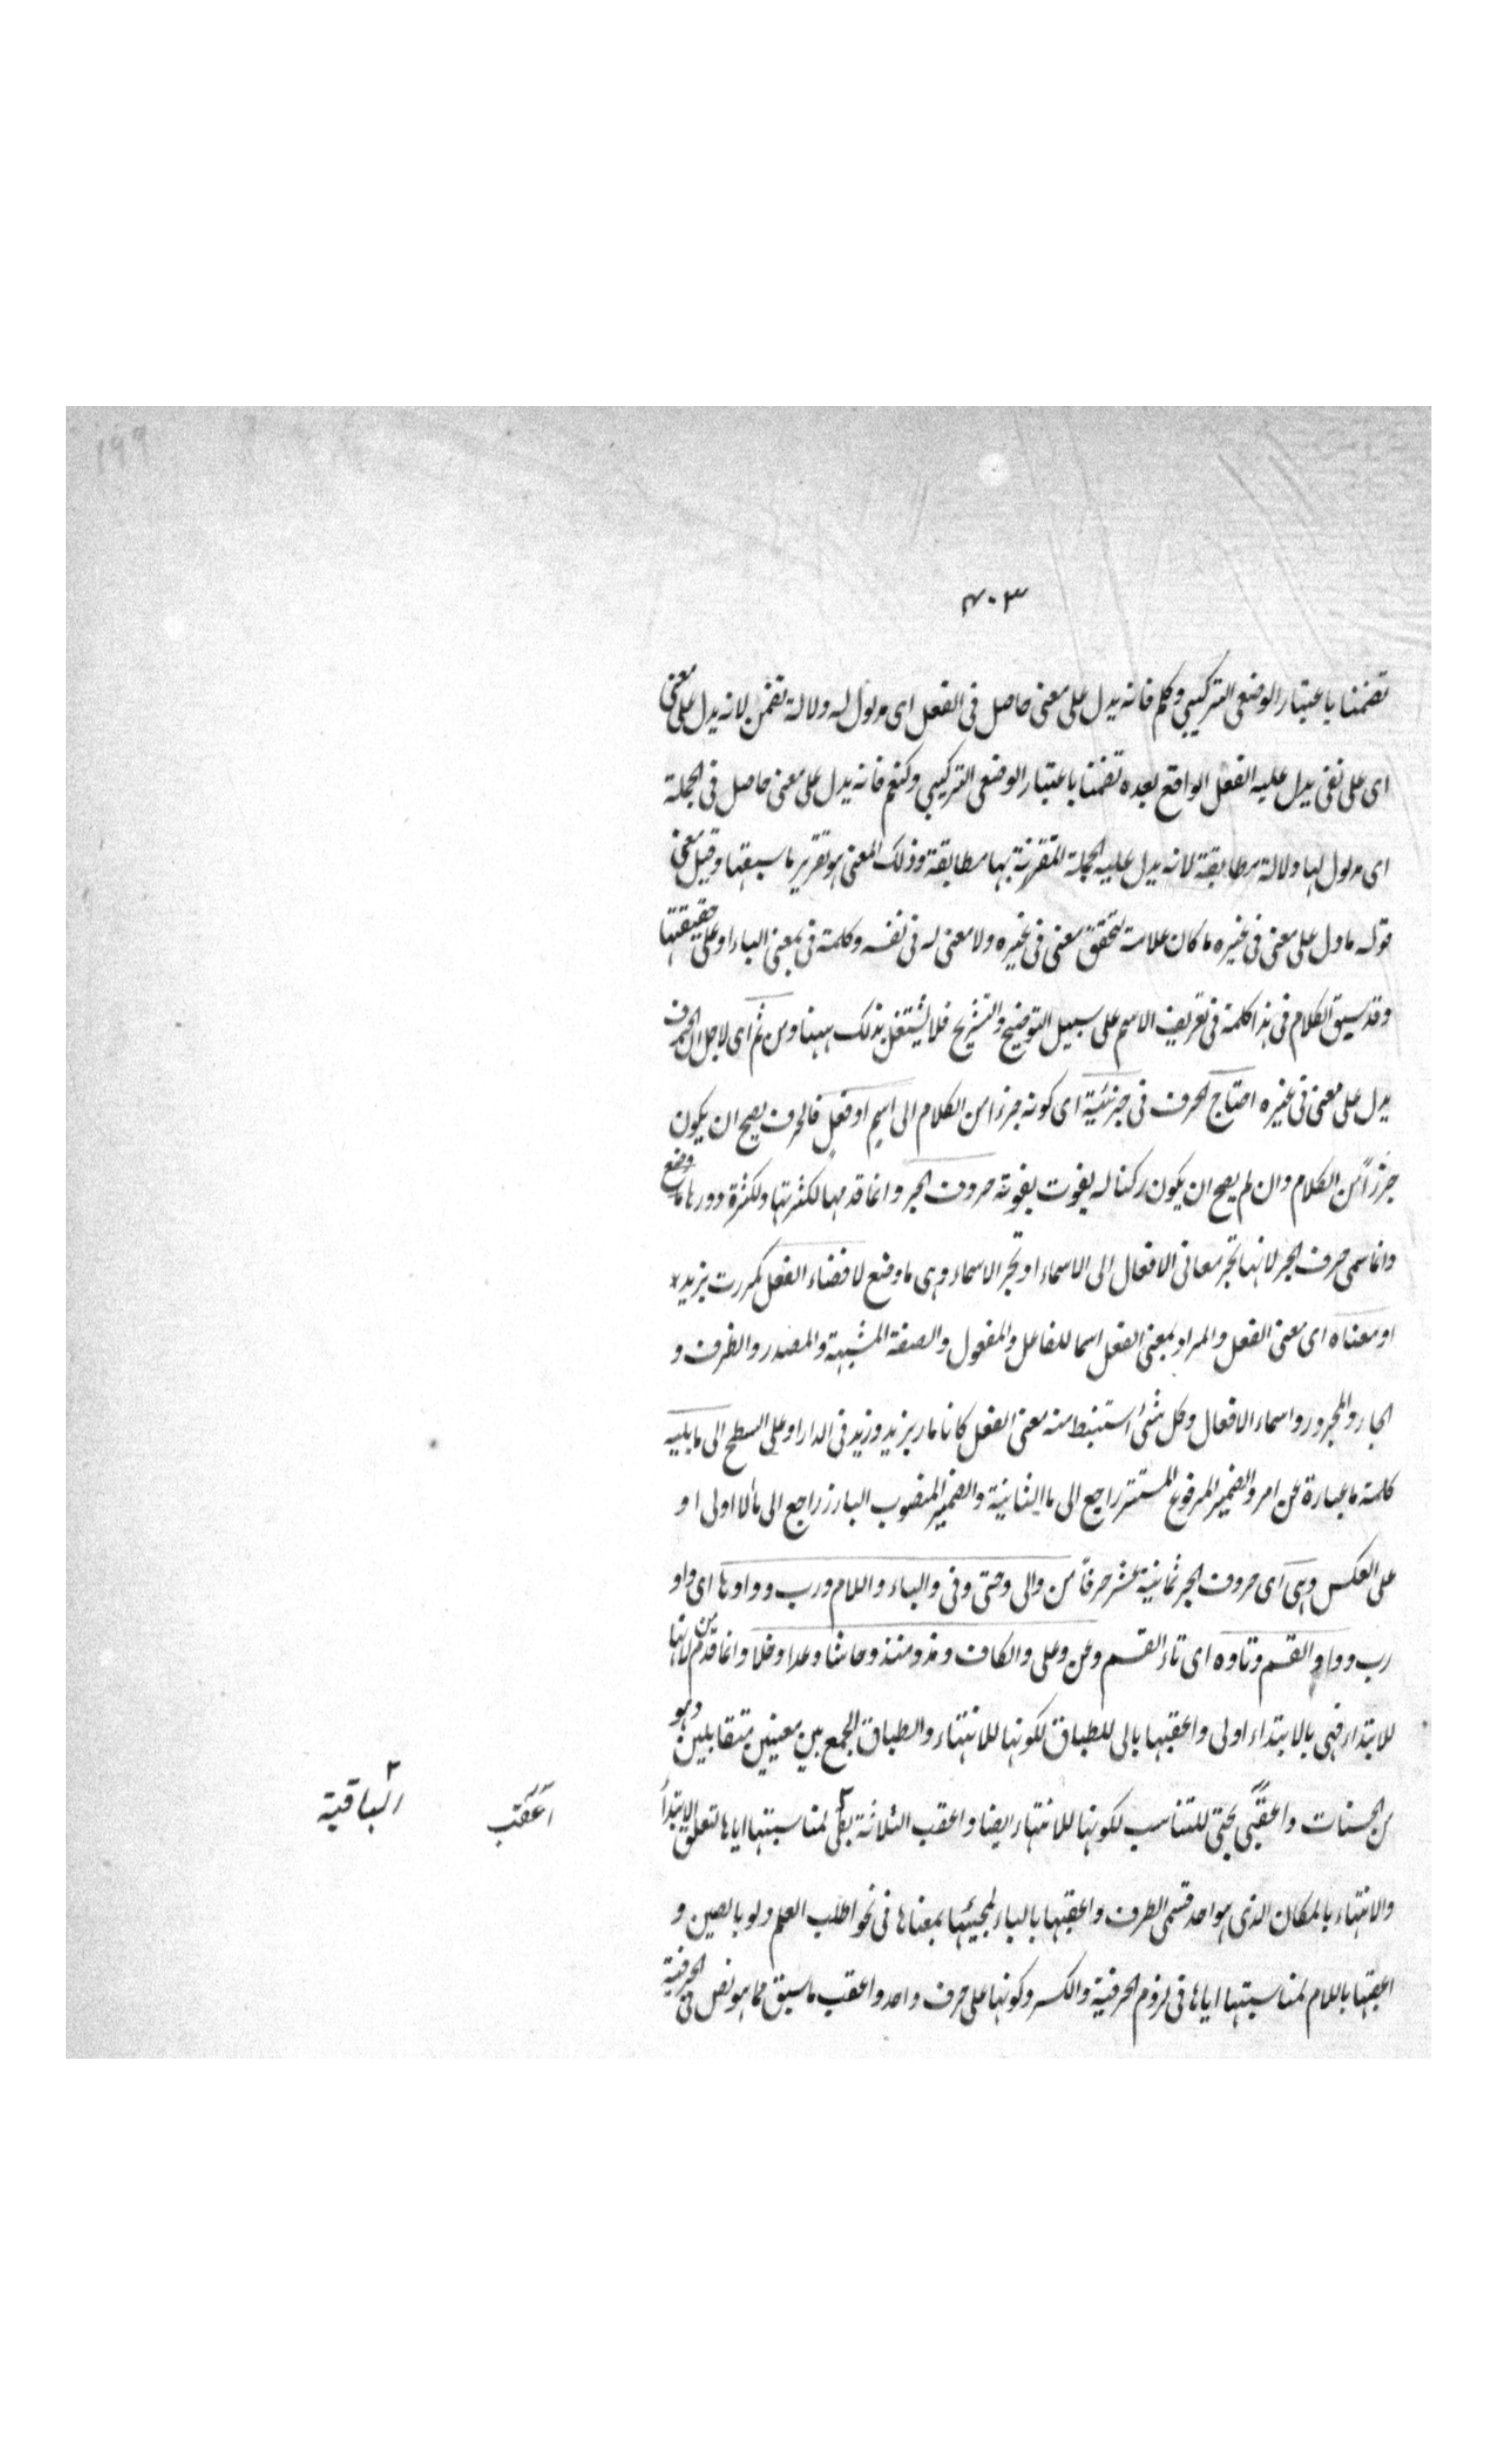 ١٩٩
٤٠٣
تضمنا باعتبار الوضعى التركيبى وكلم فانه يدل على معنى حاصل فى الفعل اى مدلول له دلالة تضمن لانه يدل على معنى
اى على نفى يدل عليه الفعل الواقع بعده تضمنا باعتبار الوضعى التركيبى وكنعم فانه يدل على معنى حاصل فى الجملة
اى مدلول لها دلالة مطابقة لانه يدل عليه الجملة المقترنة بها مطابقة وذلك المعنى هو تقرير ما سبقتها وقيل معنى
قوله ما دل على معنى فى غيره ما كان علامة لتحقق معنى فى غيره ولا معنى له فى نفسه وكلمة فى بمعنى الباء او على حقيقتها
وقد سبق الكلام فى هذا كلمة فى تعريف الاسم على سبيل التوضيح والتشريح فلا يشتغل بذلك ههنا ومن ثم اى لاجل ان الحرف
يدل على معنى فى غيره احتاج الحرف فى جزئية اى كونه جزءا من الكلام الى اسم او فعل فالحرف يصح ان يكون
جزءاً من الكلام وان لم يصح ان يكون ركنا له يفوت بفوته حروف الجر وانما قدمها لكثرتها ولكثرة دورها ما وضع
وانما سمى حرف الجر لانها تجر معانى الافعال الى الاسماء او تجر الاسماء وهى ما وضع لافضاء الفعل كمررت بزيد
او معناه اى معنى الفعل والمراد بمعنى الفعل اسما للفاعل والمفعول والصفة المشبهة والمصدر والظرف و
الجار والمجرور واسماء الافعال وكل شئ استنبط منه معنى الفعل كانا مار بزيد وزيد فى الدار او على السطح الى ما يليه
كلمة ما عبارة عن امر والضمير المرفوع المستتر راجع الى ما الثانية والضمير المنصوب البارز راجع الى ما الاولى او
على العكس وهى اى حروف الجر ثمانية عشر حرفا من والى وحتى وفى والباء واللام ورب وواوها اى واو
رب وواو القسم وتاوه اى تاء القسم وعن وعلى والكاف ومذ ومنذ وحاشا وعدا وخلا وانما قدم من لانها
للابتداء فهى بالابتداء اولى واعقبها بالى للطباق لكونها للانتهاء والطباق الجمع بين معنيين متقابلين وهو
من الحسنات واعقب بحتى للتناسب لكونها للانتهاء ايضا واعقب الثلاثة بفى لمناسبتها اياها لتعلق الابتداء
والانتهاء بالمكان الذى هو احد قسمى الظرف واعقبها بالباء لمجيئها بمعناها فى نحو اطلب العلم ولو بالصين و
اعقبها باللام لمناسبتها اياها فى لزوم الحرفية والكسر وكونها على حرف واحد واعقب ما سبق مما هو نص فى الحرفية
اعقب
الباقية